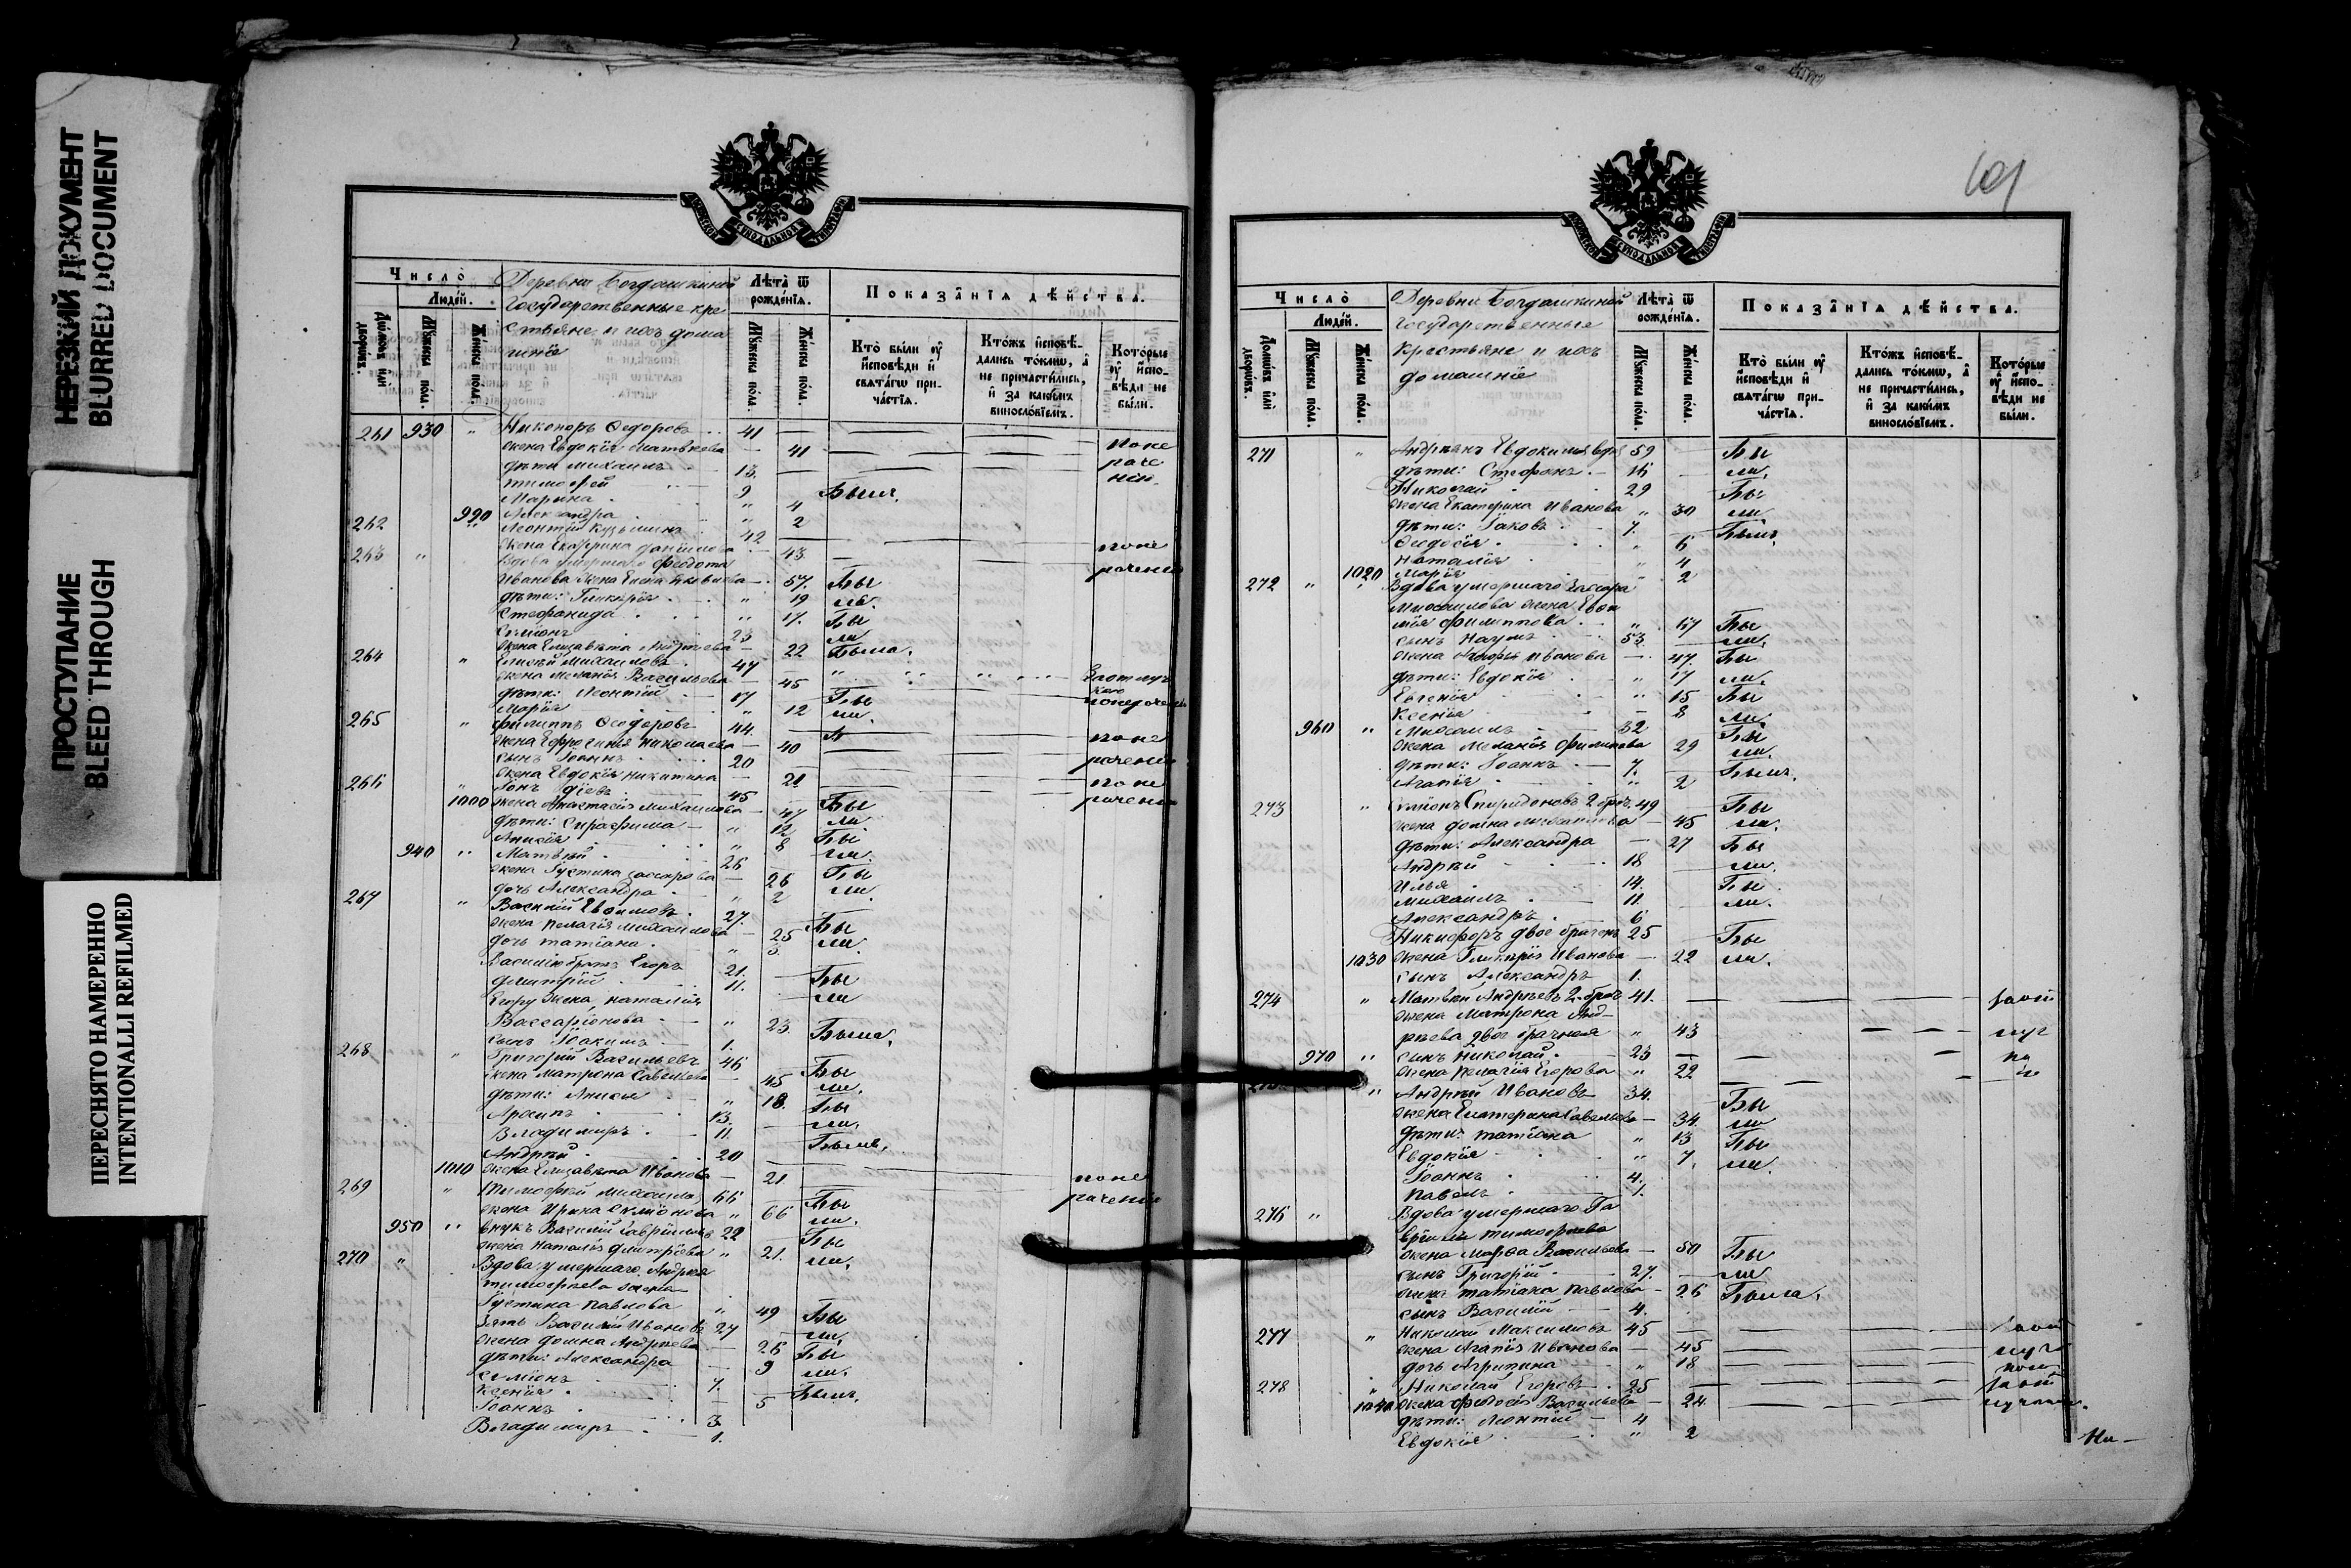 НЕРЕЗКИЙ ДОКУМЕНТ
BLURRED DOCUMENT
ПРОСТУПАНИЕ
BLEED THROUGH
ПЕРЕСНЯТО НАМЕРЕННО
INTENTIONALLI REFILMED
Число̀
Людей.
Домѡвъ или дворѡвъ.
Мꙋжеска пола.
Женска пола.
Деревни Богдашкиной
Государственные кре
стьяне и ихъ дома
шніе
Лѣта ѿ рожденїѧ.
Мꙋжеска пола.
Женска пола.
Показанїѧ дѣйства.
Кто были ᲂу исповѣди и свѧтагѡ причастїѧ.
Ктожъ исповѣдались токмѡ, а не причастились, и за какимъ винословїемъ.
Которые ᲂу исповѣди не были.
261 930 " Никопоръ Ѳедоровъ 41
жена Евдокія Матвѣева 41 по не
дѣти Михаилъ 13. раче
Тимоѳей 9 нію.
Марина " 4 Были.
990 Александра " 2
262 Леонтій Кузьминъ 42
жена Екатерина Данилова 43. по не
263 " Вдова умершаго Ѳедота раченію
Иванова жена Елена Яковлева 57. Бы
дѣти: Гликерія " 19 ли.
Стефанида " 17. Бы
Симіонъ 23 ли
жена Елизавета Андреева 22 Были.
264 " Елисѣй Михаиловъ 47
жена Меланія Васильева 45
дѣти: Леонтій 17 Бы
Марія " 12 ли.
265 " Филиппъ Ѳедоровъ 44.
жена Ефросинья Николаева 40 по не
сынъ Іоаннъ 20 раченію
жена Евдокія Никитина 21 по не
266 " 45 раченію
1000 жена Анастасія Михаилова 47 Бы
дѣти: Серафима " 12 ли
Анисія " 8 Бы
940 " Матвѣй 26 ли.
жена Іустина Захарова 26 Бы
дочь Александра " 2 ли.
267 " Василій Евѳимовъ 27.
жена Пелагія Михаилова 25 Бы
дочь Татіана " 3. ли.
Василію братъ Егоръ 21.
Димитрій 11. Бы
Егору жена Наталія ли
Вассаріонова " 23
сынъ Іоакимъ 1. Были.
268 " Григорій Васильевъ 46
жена Матрона Савельева 45 Бы
дѣти: Анисья " 18. ли.
Архипъ 13. Бы
Владимиръ 11. ли.
Андрѣй 20 Были.
1010 жена Елизавета Иванова 21
269 " Тимоѳей Михаиловъ 66 по не
жена Ирина Симіонова " 66 Бы раченію
950 " внукъ Василій Гавріиловъ 22 ли.
жена Наталія Димитріева " 21. Бы
270 " Вдова умершаго Андрея ли.
Тимоѳеева жена
Іустина Павлова " 49 Бы
зять Василій Ивановъ 27 ли.
жена Домна Андреева 26 Бы
дѣти: Александра 9 ли.
Симіонъ 7.
Ксенія 5 Были.
Іоаннъ 3.
Владимиръ 1.
101
Число̀
Людей.
Домѡвъ или дворѡвъ.
Мꙋжеска пола.
Женска пола.
Деревни Богдашкиной
Государственные
крестьяне и ихъ
домашніе
Лѣта ѿ рожденїѧ.
Мꙋжеска пола.
Женска пола.
Показанїѧ дѣйства.
Кто были ᲂу исповѣди и свѧтагѡ причастїѧ.
Ктожъ исповѣдались токмѡ, а не причастились, и за какимъ винословїемъ.
Которые ᲂу исповѣди не были.
271 " Андріанъ Евдокимовъ 59 Бы
дѣти: Стефанъ 16 ли.
Николай 29 Бы
жена Екатерина Иванова " 30 ли
дѣти: Іаковъ 7. Были,
Ѳеодосія " 6
Наталія " 4
1020 Марія " 2
272 " " Вдова умершаго Захара
Михаилова жена Евѳи
мія Филиппова " 67 Бы
сынъ Наумъ 53. ли.
жена Иванова 47. Бы
дѣти: Евдокія " 17 ли.
Евгенія " 15 Бы
Ксенія 8 ли.
960 " Михаилъ 32 Бы
жена Меланія Филипова 29 ли.
дѣти: Іоаннъ 7. Были.
Агапія " 2
273 " Симіонъ Спиридоновъ 2 брач. 49 Бы
жена Домна Михаилова 45 ли.
дѣти: Александра 27 Бы
Андрѣй 18 ли.
Илья 14. Бы
Михаилъ 11. ли.
Александръ 6
Никифоръ двое брачен. 25 Бы
1030 жена Гликерія Иванова 22 ли.
сынъ Александръ 1.
274 " Матвѣй Андреевъ 2-брач. 41. за от
жена Матрона Анд-
реева двое брачная " 43 луч
970 " сынъ Николай 23 ко
жена Пелагія Егорова " 22 й
" Андрѣй Ивановъ 34. Бы
жена Екатерина Савельева 34. ли
дѣти: Татіана " 13 Бы
Евдокія " 7. ли.
Іоаннъ 4.
Павелъ 1.
276 " Вдова умершаго Га
вріила Тимоѳеева
жена Марѳа Васильева 50 Бы
сынъ Григорій 27. ли
жена Татіана Павлова 26 Были.
сынъ Василій 4.
277 " Николай Максимовъ 45 за от
жена Агапія Иванова 45 луч
дочь Агрипина " 18 кою
278 " Николай Егоровъ 25 за от
1040 жена Ѳедосія Васильева 24. лучкою.
дѣти: Леонтій 4
Евдокія " 2
Ни-